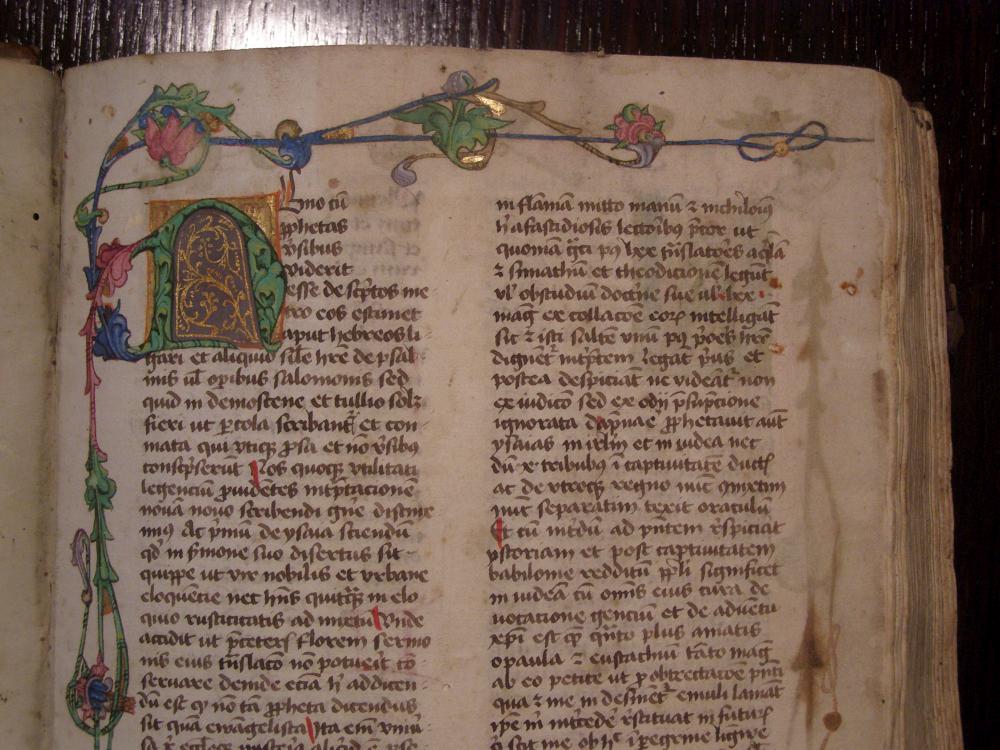 Nemo cū
ꝓphetas
v̓sibus
viderit
esse desc̓ptos me
tro eos estimet
aput hebreos li
gari et aliquid sil̓e hr̄e de psal
mis ul̓ oꝑibus salomonis sed
quid in demostene et tullio sol̓
fieri ut ꝑ cola scribant᷑ et com
mata qui vtiqꝫ ꝓsa et nō v̓sibꝫ
consc̓pserūt Nos quoqꝫ vtilitati
legenciū ꝓuidētes int̓p̄tacionē
nouā nouo scribendi gn̄e distinx
imꝰ Ac p̓mū de ysaia sciendū
qd̓ in s̓mone suo disertus sit
quippe ut vir nobilis et vrbane
eloquēcie nec hn̄s quitqꝫ in elo
quio rusticitatis admixtū Vnde
accidit ut p̄ cet̓is florem sermo
nis eius tn̄slacō nō potuerit cō
seruare deinde eciā h̓ adicien
dū est qꝫ nō tā ꝓpheta dicendus
sit quā ewāgelista Ita em̄ vniu̓
in flāmā mitto manū ⁊ nichilominꝰ
h̓ a fastidiosis lectoribꝫ p̓cor ut
quomō gr̄ci pꝰ lxx tn̄slatores aq̓lā
⁊ simachū et theodicionē legūt
ul̓ ob studiū doct̓ne sue ul̓ ut lxx
mag̓ ex collacōe eoꝝ intelligāt
sic ⁊ isti saltē vnū pꝰ p̓ores hr̄e
dignent᷑ int̓p̄tem legāt p̓us et
postea despiciāt ne videāt᷑ non
ex iudicio sed ex odij p̄sūpcione
ignorata dāpnare ꝓphetauit aūt
ysaias in irl̄m et in iudea nec
dū x tribubꝫ ī captiuitatē ductis
ac de vtroqꝫ regno nūc cōmixtim
nūc separatim texit oraculū
Et cū int̓dū ad p̄ntem r̓spiciat
ystoriam et post captiuitatem
babilonie redditū pp̄li significet
in iudeam tn̄ omīs eius cura de
uocatione genciū et de aduētu
xp̄i est qꝫ q̓nto plus amatis
o paula ⁊ eustachiū tāto mag̓
ab eo petite ut ꝓ obtrectacōe p̄nti
qua ⁊ me indesinēt᷑ emuli laniāt
ip̄e m̓ m̓cedē r̓stituat in futuꝝ